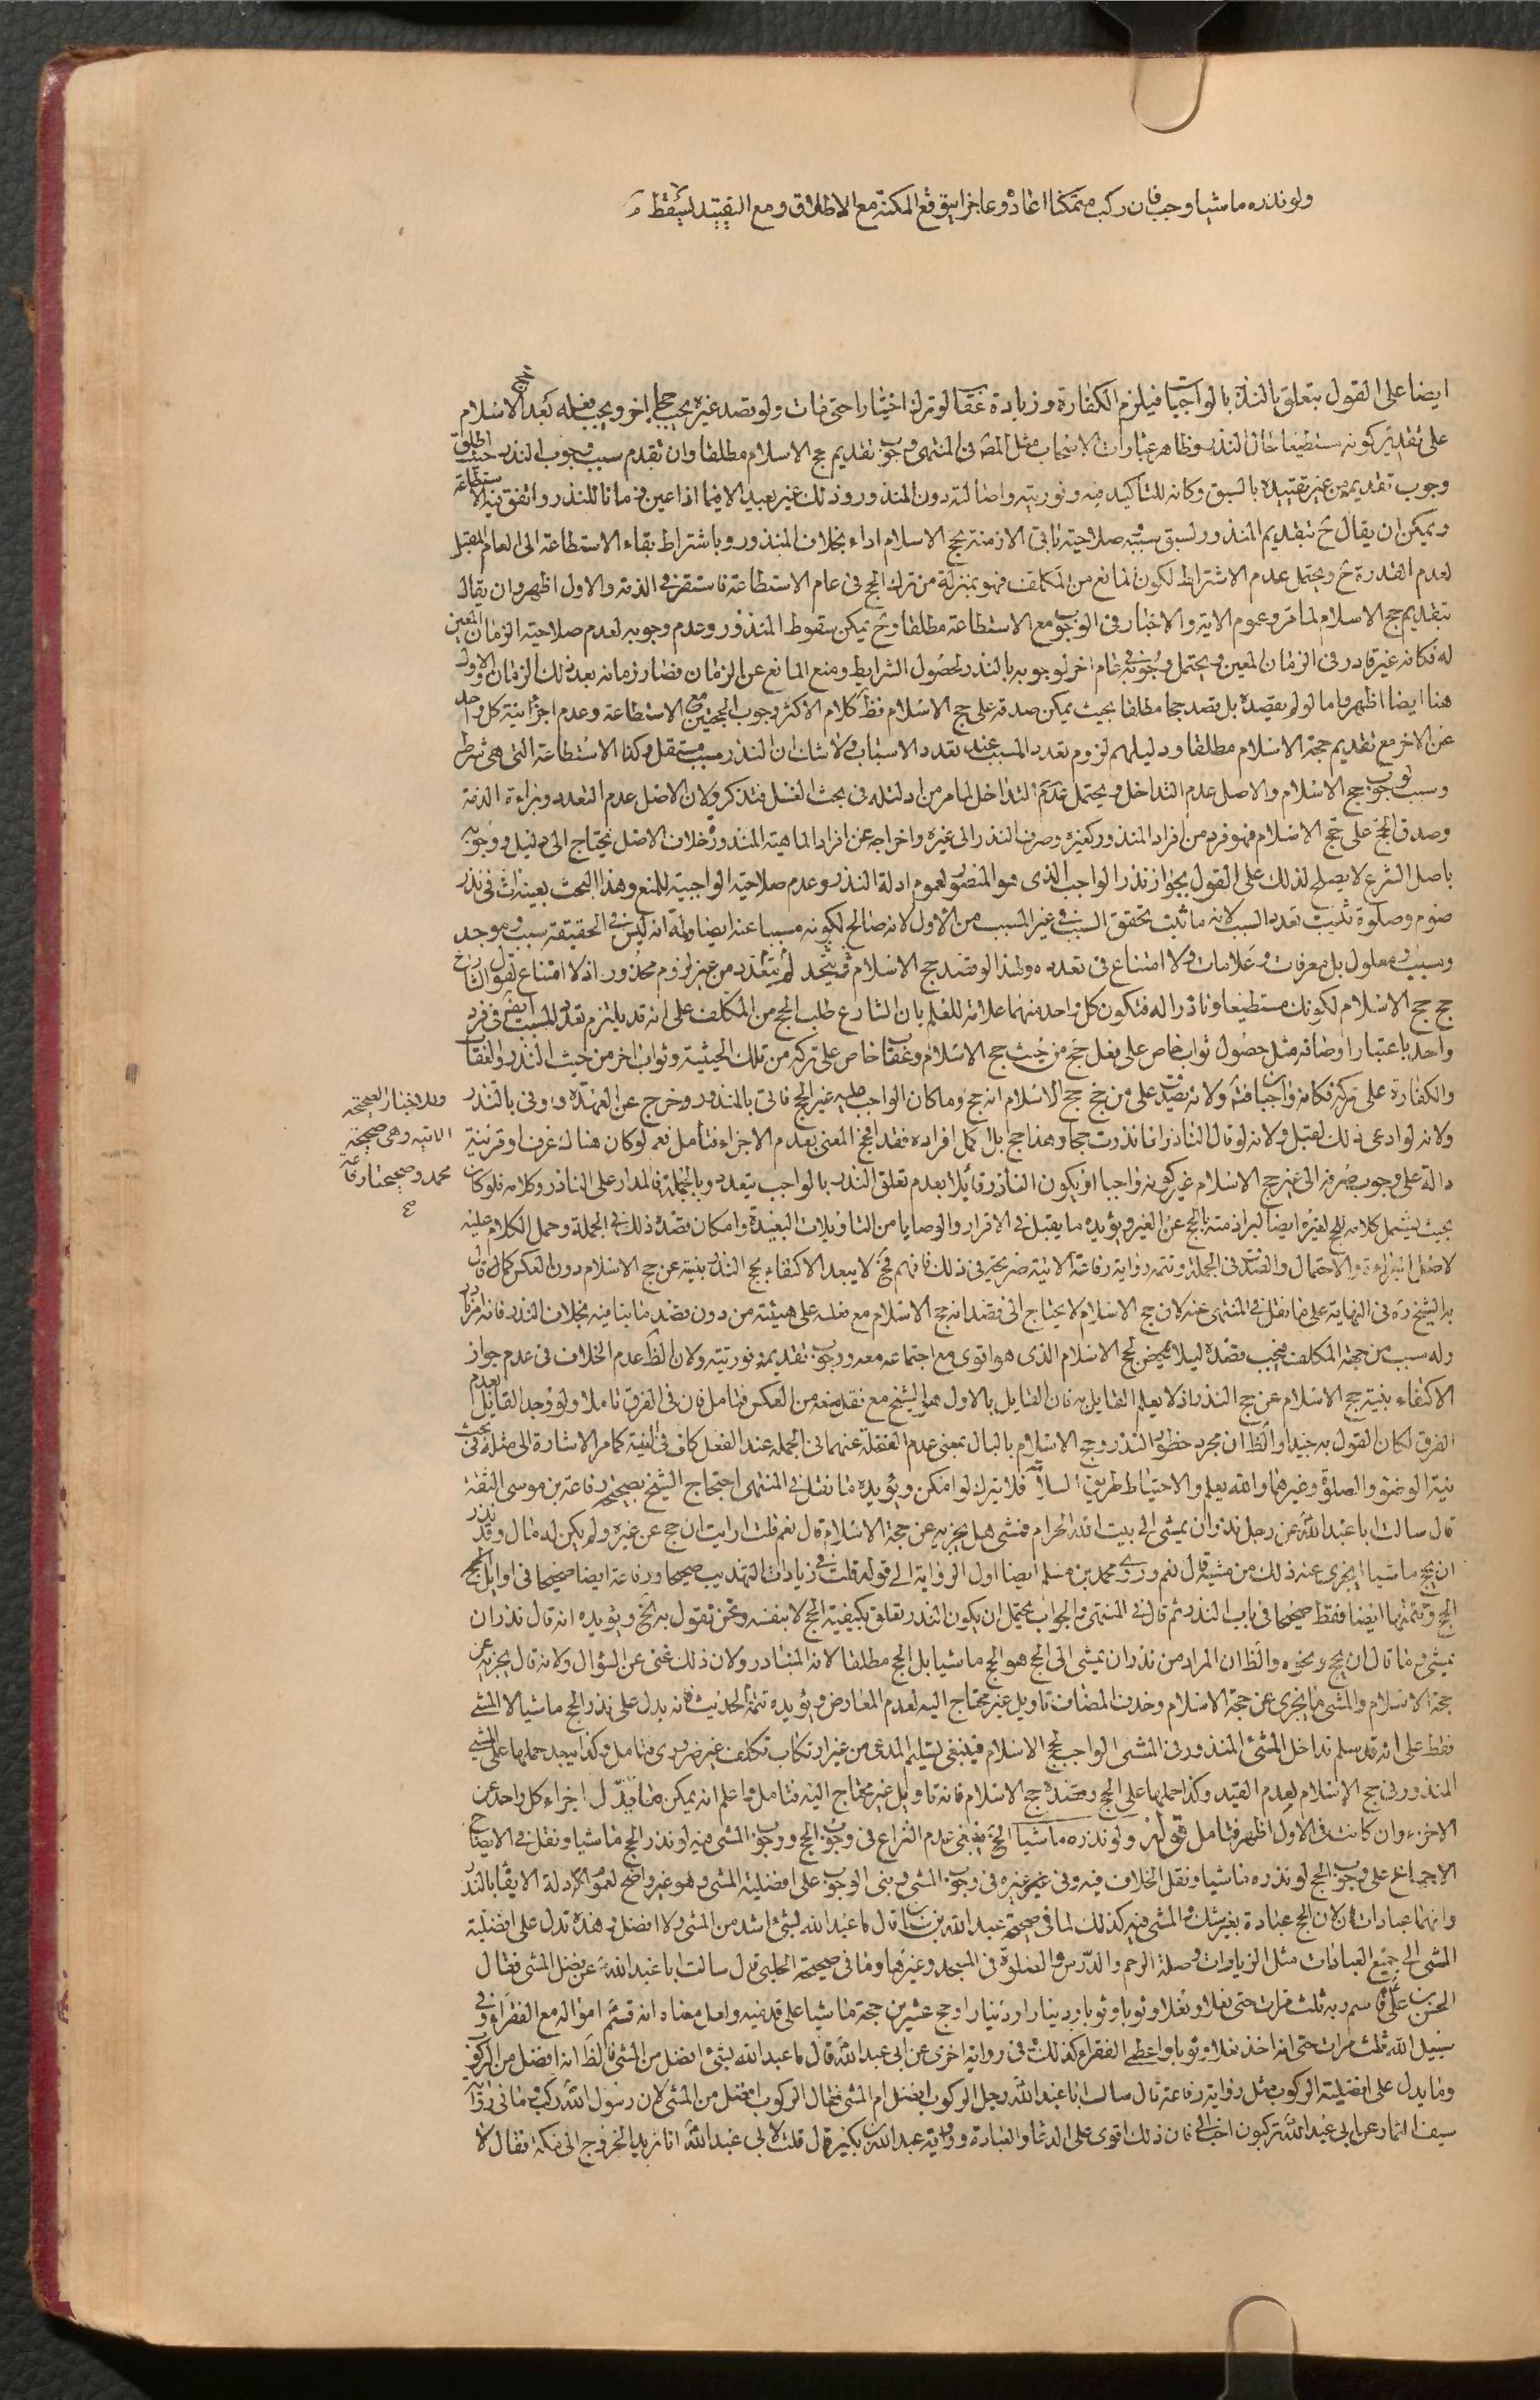 ولو نذره ماشيا وجب فان ركب متمكنا اعاد وعاجزا يتوقع المكنة مع الاطلاق ومع التقييد يسقط
ايضا على القول بتعلق النذر بالواجبات فيلزم الكفارة وزيادة عقاب لو ترك اختيارا حتى مات ولو قصد غيره يجب حج اخر ويجب فعله بعد حج الاسلام
على تقدير كونه مستطيعا حال النذر وظاهر عبارات الاصحاب مثل المص في المنتهى وجوب تقديم حج الاسلام مطلقا وان تقدم سبب وجوب النذر حيث اطلق
وجوب تقديمه من غير تقييده بالسبق وكانه للتاكيد فيه وفوريته واصالته دون المنذور وذلك غير بعيد الا فيما اذا عين زمانا للنذر واتفق فيه الاستطاعة
ويمكن ان يقال ح بتقديم المنذور لسبق سببه صلاحية باقي الازمنة لحج الاسلام اداء بخلاف المنذور وباشتراط بقاء الاستطاعة الى العام المقبل
لعدم القدرة ح ويحتمل عدم الاشتراط لكون المانع من المكلف فهو بمنزلة من ترك الحج في عام الاستطاعة فاستقر في الذمة والاول اظهر وان يقال
بتقديم حج الاسلام لما مر وعموم الاية والاخبار في الوجوب مع الاستطاعة مطلقا وح يمكن سقوط المنذور وعدم وجوبه لعدم صلاحية الزمان المعين
له فكانه غير قادر في الزمان المعين ويحتمل وجوبه في عام اخر لوجوبه بالنذر لحصول الشرايط ومنع المانع عن الزمان فصار زمانه بعد ذلك الزمان والاول
هنا ايضا اظهر واما لو لم يقصده بل قصد حجا مطلقا بحيث يمكن صدقه على حج الاسلام فظ كلام الاكثر وجوب الحجتين مع الاستطاعة وعدم اجزائية كل واحد
عن الاخر مع تقديم حجة الاسلام مطلقا ودليلهم لزوم تعدد المسبب عند تعدد الاسباب ولا شك ان النذر سبب مستقل وكذا الاستطاعة التي هي شرط
وسبب لوجوب حج الاسلام والاصل عدم التداخل ويحتمل عدم التداخل لما مر من ادلته في بحث الغسل فتذكر ولان الاصل عدم التعدد وبراءة الذمة
وصدق الحج على حج الاسلام فهو فرد من افراد المنذور كغيره وصرف النذر الى غيره واخراجه عن افراد الماهية المنذورة خلاف الاصل يحتاج الى دليل ووجوبه
باصل الشرع لا يصلح لذلك على القول بجواز نذر الواجب الذي هو المنصور لعموم ادلة النذر وعدم صلاحية الواجبية للمنع وهذا البحث بعينه ات في نذر
صوم وصلوة تثبيت تعدد السبب لانه ما ثبت تحقق السبب في غير المسبب من الاول لانه صالح لكونه مسببا عنه ايضا ولما انه ليس في الحقيقة سبب وموجد
وسبب ومعلول بل معرفات وعلامات ولا امتناع في تعدده ولهذا لو قصد حج الاسلام فيتحد لم يتعدد من غير لزوم محذور اذ لا امتناع لقول الشارع
حج حج الاسلام لكونك مستطيعا وناذرا له فتكون كل واحد منهما علامة للعلم بان الشارع طلب الحج من المكلف على انه قد يلتزم تعدد المسبب ايضا في فرد
واحد باعتبار اوصافه مثل حصول ثواب خاص على فعل حج من حيث حج الاسلام وعقاب خاص على تركه من تلك الحيثية وثواب اخر من حيث النذر والعقاب
والكفارة على تركه فكانه واجبات فيه ولانه يصدق على من حج حج الاسلام انه حج وما كان الواجب عليه غير الحج فاتى بالمنذور وخرج عن العهدة ووفى بالنذر
وللاخبار الصحيحة
الاتية وهي صحيحة
محمد وصحيحتا رفاعة
ولانه لو ادعى ذلك لقبل ولانه لو قال الناذر انما نذرت حجا وهذا حج بل اكمل افراده فقد افتح المعنى بعدم الاجزاء فتامل نعم لو كان هناك عرف او قرينة
دالة على وجوب صرفه الى غير حج الاسلام غير كونه واجبا او يكون الناذر قائلا بعدم تعلق النذر بالواجب يتعدد وبالجملة فالمدار على الناذر وكلامه فلو كان
بحيث يشمل كلامه للحج لغيره ايضا لبراءة ذمته بالحج عن الغير ويؤيده ما يقبل في الاقرار والوصايا من التاويلات البعيدة وامكان قصده ذلك في الجملة وحمل الكلام عليه
لاصل البراءة والاحتمال والقصد في الجملة وتتمة رواية رفاعة الاتية صريحة في ذلك فافهم فح لا يبعد الاكتفاء بحج النذر بنية عن حج الاسلام دون العكس كما قال
به الشيخ ره في النهاية على ما نقل في المنتهى عنه لان حج الاسلام لا يحتاج الى قصد انه حج الاسلام مع فعله على هيئته من دون قصد ما ينافيه بخلاف النذر فانه امر نادر
وله سبب من جهة المكلف فيجب قصده ليلا يمحض لحج الاسلام الذي هو اقوى مع اجتماعه معه ووجوب تقديمه وفوريته ولان الظ عدم الخلاف في عدم جواز
الاكتفاء بنية حج الاسلام عن حج النذر اذ لا يعلم القايل به فان القايل بالاول هو الشيخ مع نقله منعه من العكس فتامل فان في الفرق تاملا ولو وجد القايل بعدم
الفرق لكان القول به جيدا والظ ان مجرد خطور النذر وحج الاسلام بالبال بمعنى عدم الغفلة عنهما في الجملة عند الفعل كاف في النية كما مر الاشارة الى مثله في بحث
نية الوضوء والصلوة وغيرهما والله يعلم والاحتياط طريق السلامة فلا يترك لو امكن ويؤيده ما نقل في المنتهى احتجاج الشيخ بصحيحة رفاعة بن موسى الثقة
قال سالت ابا عبد الله ع عن رجل نذر ان يمشي الى بيت الله الحرام فمشى هل يجزيه عن حجة الاسلام قال نعم قلت ارايت ان حج عن غيره ولم يكن له مال وقد نذر
ان يحج ماشيا ايجزي عنه ذلك من مشيه قال نعم وروى محمد بن مسلم ايضا اول الرواية الى قوله قلت في زيادات التهذيب صحيحا ورفاعة ايضا صحيحا في اوايل الحج
الحج وتتمتها ايضا فقط صحيحا في باب النذر ثم قال في المنتهى والجواب يحتمل ان يكون النذر تعلق بكيفية الحج لا بنفسه ونحن نقول به الخ ويؤيده انه قال نذر ان
يمشي وما قال ان يحج ونحوه والظ ان المراد من نذر ان يمشي الى الحج هو الحج ماشيا بل الحج مطلقا لانه المتبادر ولان ذلك غني عن السؤال ولانه قال يجزيه عن
حجة الاسلام والمشي ما يجزي عن حجة الاسلام وحذف المضاف تاويل غير محتاج اليه لعدم المعارض ويؤيده تتمة الحديث فانه يدل على نذر الحج ماشيا لا المشي
فقط على انه قد سلم تداخل المشي المنذور في المشي الواجب لحج الاسلام فينبغي تسليم المدعى من غير ارتكاب تكلف غير ضروري فتامل وكذا يبعد حملها على المشي
المنذور في حج الاسلام لعدم القيد وكذا حملها على الحج وقصده حج الاسلام فانه تاويل غير محتاج اليه فتامل واعلم انه يمكن اجزاء كل واحد عن
الاخر وان كانت في الاول اظهر فتامل قوله ولو نذره ماشيا الخ ينبغي عدم النزاع في وجوب الحج ووجوب المشي فيه لو نذر الحج ماشيا ونقل في الايضاح
الاجماع على وجوب الحج لو نذره ماشيا ونقل الخلاف فيه وفي غيره في وجوب المشي وبنى الوجوب على افضلية المشي وهو غير واضح لعموم الادلة الايفاء بالنذر
وانهما عبادات ولان الحج عبادة بغير شك والمشي فيه كذلك لما في صحيحة عبد الله بن سنان قال ما عبد الله بشئ اشد من المشي ولا افضل وهذه تدل على افضلية
المشي الى جميع العبادات مثل الزيارات وصلة الرحم والدرس والصلوة في المسجد وغيرها وما في صحيحة الحلبي قال سالت ابا عبد الله ع عن فضل المشي فقال
الحسن بن علي ع قاسم ربه ثلث مرات حتى نعلا ونعلا وثوبا وثوبا ودينارا ودينارا وحج عشرين حجة ماشيا على قدميه ولعل معناه انه قسم امواله مع الفقراء وفي
سبيل الله ثلث مرات حتى انه اخذ نعلا وثوبا واعطى الفقراء كذلك وفي رواية اخرى عن ابي عبد الله ع قال ما عبد الله بشئ افضل من المشي فالظ انه افضل من الركوب
وما يدل على افضلية الركوب مثل رواية رفاعة قال سالت ابا عبد الله ع رجل الركوب افضل ام المشي فقال الركوب افضل من المشي لان رسول الله ص ركب وما في رواية
سيف التمار عن ابي عبد الله ع تركبون احب الي فان ذلك اقوى على الدعاء والعبادة ورواية عبد الله بن بكير قال قلت لابي عبد الله ع انا نريد الخروج الى مكة فقال لا